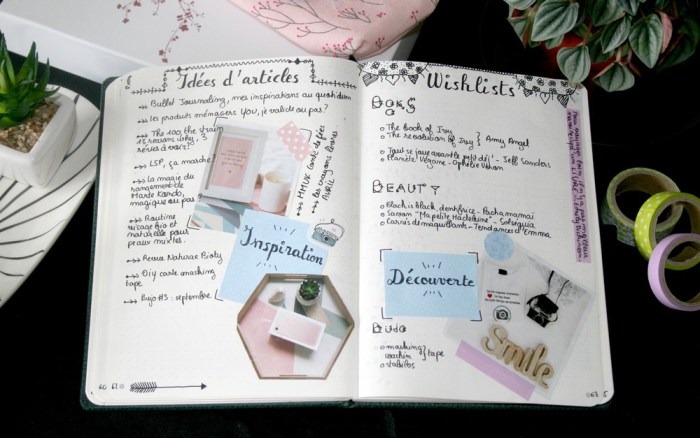 Idées d'articles
Bullet Journaling, mes inspirations au quotidien
les produits ménagers You, je valide ou pas?
The 100, the strain
15 reasons why, 3
séries à voir!
LSP, ça marche?
La magie du
rangement de
Marie Kondo,
magique ou pas
Routine
visage bio et
naturelle pour
peaux mixtes.
Revue Naturae Bioty
Diy carte masking
tape
Bujo #3 : septembre
Inspiration
60
Wishlists
BOOKS
The book of Ivy
The revolution of Ivy } Amy Engel
Tout se joue avant le petit déj' - Jeff Sanders
Planète Végane - Ophélie Véron
BEAUTY
Black is black, dentifrice - Pachamamaï
Savon "Ma petite Madeleine" -
Carnet de maquillants - Tendances d'Emma
Découverte
Smile
BUJO
masking
washi } tape
stabilos